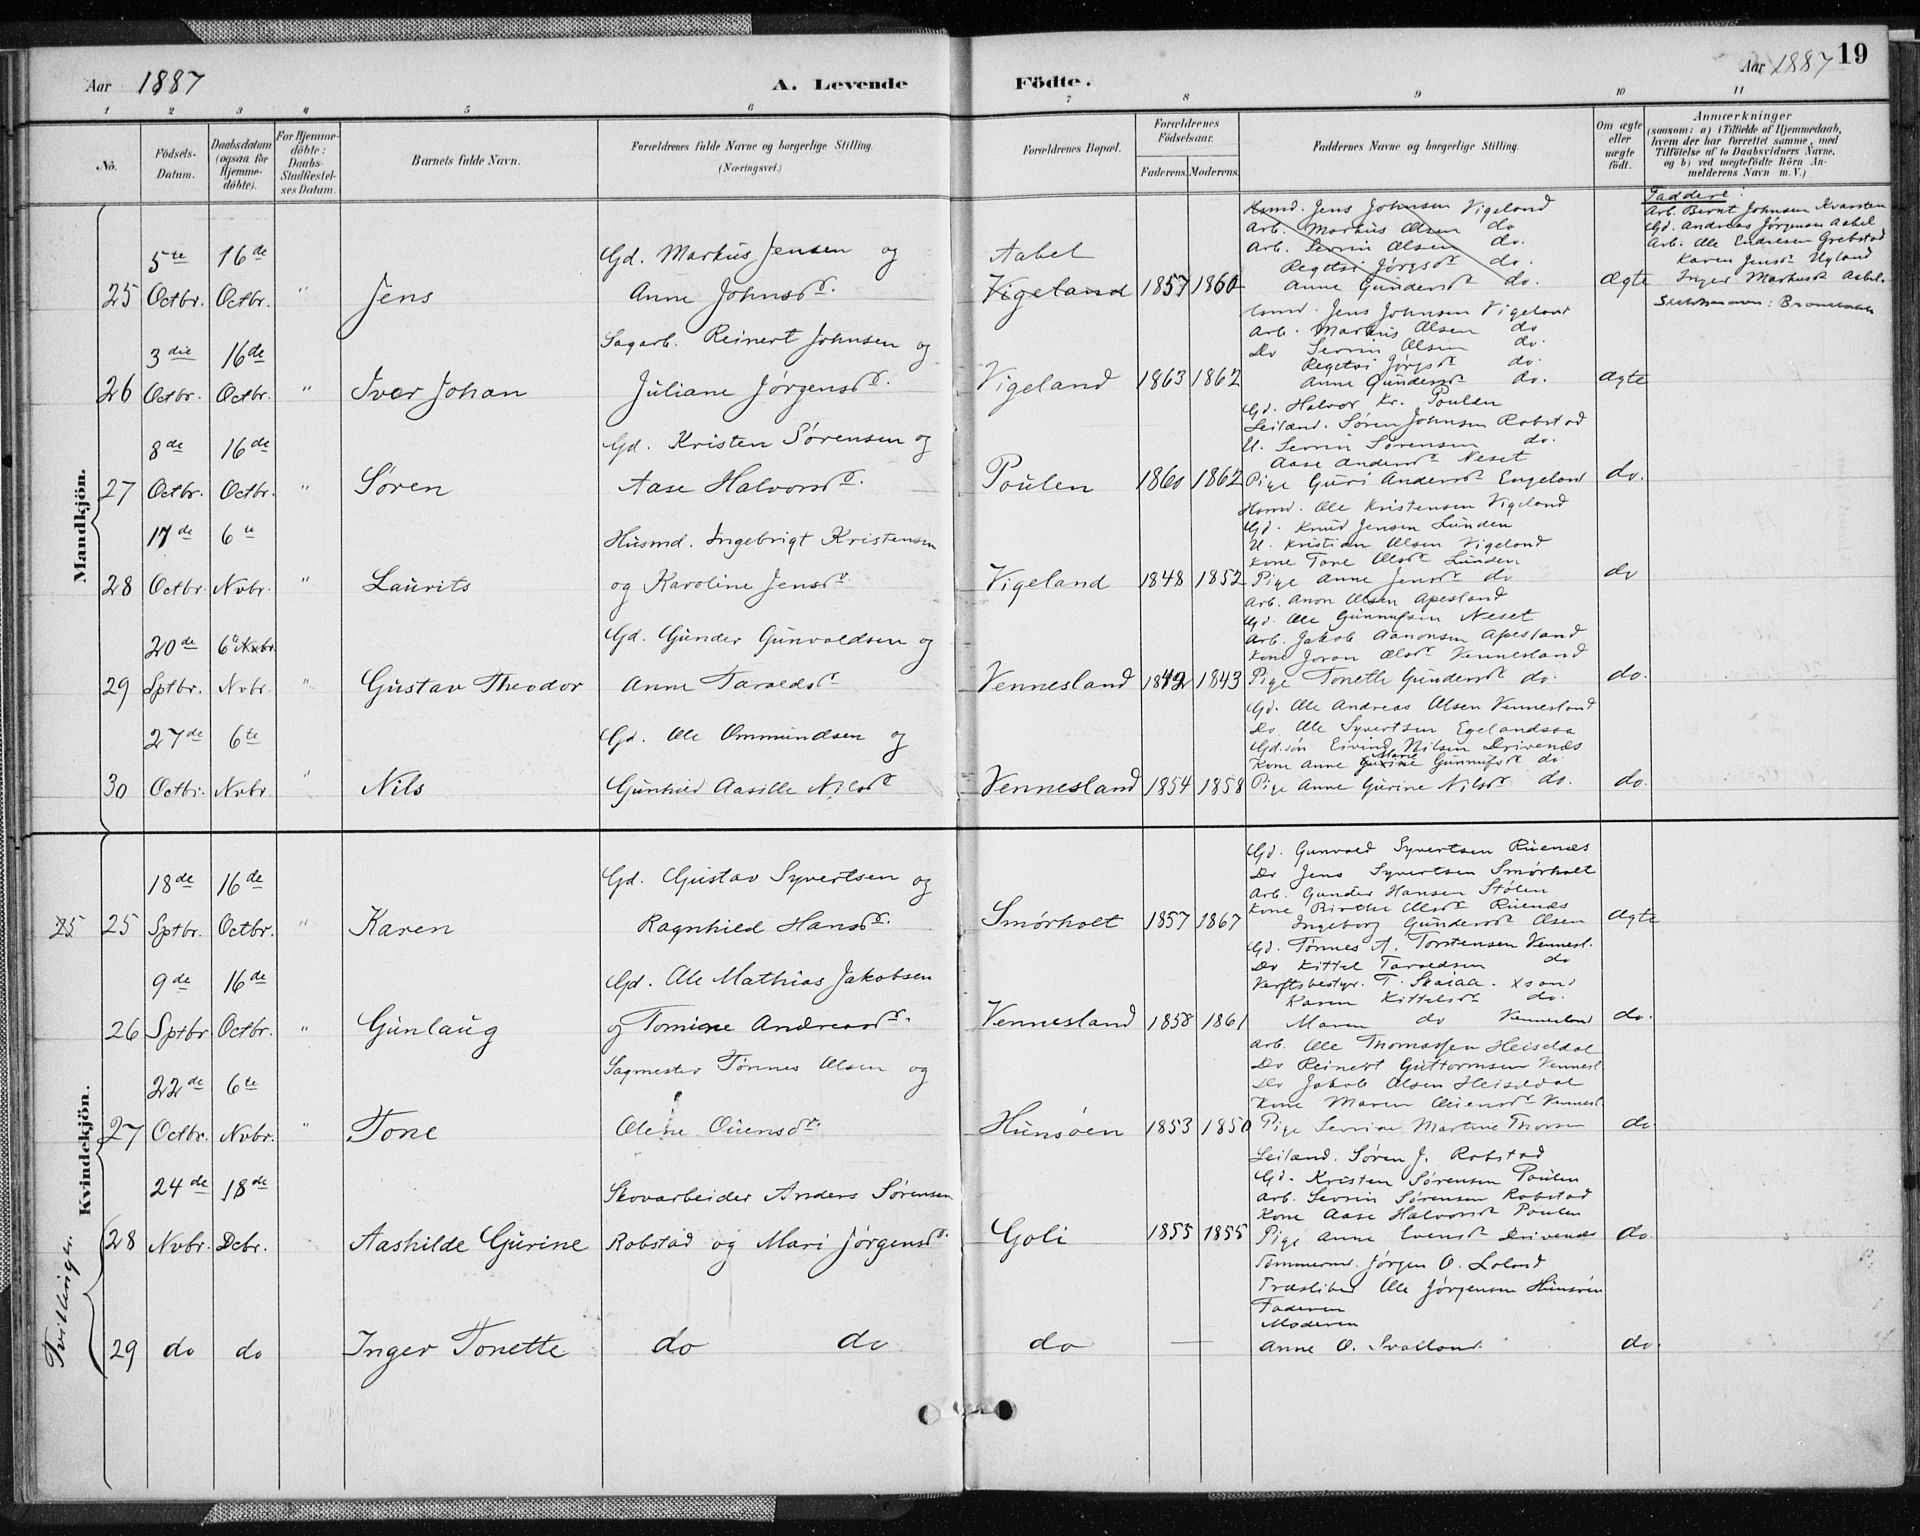 Aar 1887 A. Levende Födte. Aar 1887 19
1 2 3 4 5 6 7 8 9 10 11
No. Födsels-Datum. Daabsdatum (ogsaa for Hjemmedöbte). For Hjemmedöbte: Daabs-Stadfæstelses Datum. Barnets fulde Navn. Forældrenes fulde Navne og borgerlige Stilling. (Næringsvei.) Forældrenes Bopæl. Forældrenes Födselsaar. Faderens. Moderens. Faddernes Navne og borgerlige Stilling. Om ægte eller uægte födt. Anmærkninger (saasom: a) i Tilfælde af Hjemmedaab, hvem der har forrettet samme, med Tilföielse af to Daabsvidners Navne, og b) ved uægtefödte Börn Anmelderens Navn m. V.)
Mandkjön.
25 5te Octbr. 16de Octbr. " Jens
Gd. Markus Jensen og
Anne Johnsdr.
Aabel
Vigeland 1857 1860
Husmd. Jens Johnsen Vigeland
Arb. Markus Olsen do
Arb. Sevrin Olsen do.
Regetsi Jørgsdr do.
Anne Gundersdr do.
ægte
Faddere:
Arb. Bernt Johnsen Kvarsten
Gd. Andreas Jørgensen Aabel
Arb. Ole Endresen Grebstad
Karen Jensdr Ugland
Inger Markusdr Aabel.
26 3die Octbr. 16de Octbr. " Iver Johan
Sagarb. Reinert Johnsen og
Juliane Jørgensdr.
Vigeland 1863 1862
Husmd. Jens Johnsen Vigeland
Arb. Markus Olsen do
Do Sevrin Olsen do.
Regetsi Jørgsdr do.
Anne Gundersdr do.
ægte
27 8de Octbr. 16de Octbr. " Søren
Gd. Kristen Sørensen og
Aase Halvorsdr.
Poulen 1860 1862
Gd. Halvor Kr. Poulen
Leilænd. Søren Johnsen Robstad
U. Sevrin Sørensen do.
Aase Andersdr Neset
Pige Guri Andersdr Engeland
do.
28 17de Octbr. 6te Nvbr. " Laurits
Husmd. Ingebrigt Kristensen
og Karoline Jensdr.
Vigeland 1848 1852
Husmd. Ole Kristensen Vigeland
Gd. Knud Jensen Lunden
U. Kristian Olsen Vigeland
Kone Tone Olsdr Lunden
Pige Anne Jensdr do
do
29 20de Sptbr. 6te Nvbr. " Gustav Theodor
Gd. Gunder Gunvaldsen og
Anne Taraldsdr
Vennesland 1842 1843
Arb. Anon Olsen Apesland
Gd. Ole Gunnufsen Neset
Arb. Jakob Aanonsen Apesland
Kone Joran Olsdr Vennesland
Pige Tonette Gundersdr do.
do.
30 27de Octbr. 6te Nvbr. " Nils
Gd. Ole Ommundsen og
Gunhild Aasille Nilsdr
Vennesland 1854 1858
Gd. Ole Andreas Olsen Vennesland
Do. Ole Syvertsen Egelandsaa
Gd.søn Eivind Nilsen Drivenæs
Kone Anne Marie Gunnufsdr do
Pige Anne Gurine Nilsdr do.
do.
Kvindekjön.
25 25 18de Sptbr. 16de Octbr. " Karen
Gd. Gustav Syvertsen og
Ragnhild Hansdr.
Smørholt 1857 1867
Gd. Gunvald Syvertsen Ruenæs
Do Jens Syvertsen Smørholt
Arb. Gunder Hansen Stølen
Kone Birthe Olsdr Ruenæs
Ingeborg Gundersdr Olsen
ægte
26 9de Sptbr 16de Octbr. " Gunlaug
Gd. Ole Mathias Jakobsen
og Tomine Andreasdr.
Vennesland 1858 1861
Gd. Tønnes A. Torstensen Vennesl.
Do Kittel Taraldsen do
Verftsbestyr. T. Skaiaa. Xsand
Karen Kittelsdr do.
Maren do Vennesland
do.
27 22de Octbr. 6te Nvbr. " Tone
Sagmester Tønnes Olsen og
Olene Ouensdr.
Hunsøen 1853 1850
Arb. Ole Thomassen Heiseldal
Do Reinert Guttormsen Vennesl.
Do Jakob Olsen Heiseldal
Kone Maren Ouensdr Vennesl.
Pige Sevrine Martine Thorsen
do
Tvillinger.
28 24de Nvbr. 18de Dcbr. Aashilde Gurine
Skovarbeider Anders Sørensen
Robstad og Mari Jørgensdr.
Goli 1855 1855
Leilænd. Søren J. Robstad
Gd. Kristen Sørensen Poulen
Arb. Sevrin Sørensen Robstad
Kone Aase Halvorsdr Poulen
Pige Anne Evensdr Drivenæs
do.
29 do do Inger Tonette do do do —
Tømmermd. Jørgen O. Loland
Træsliber Ole Jørgensen Hunsøen
Faderen
Moderen
Anne O. Svalland.
do.